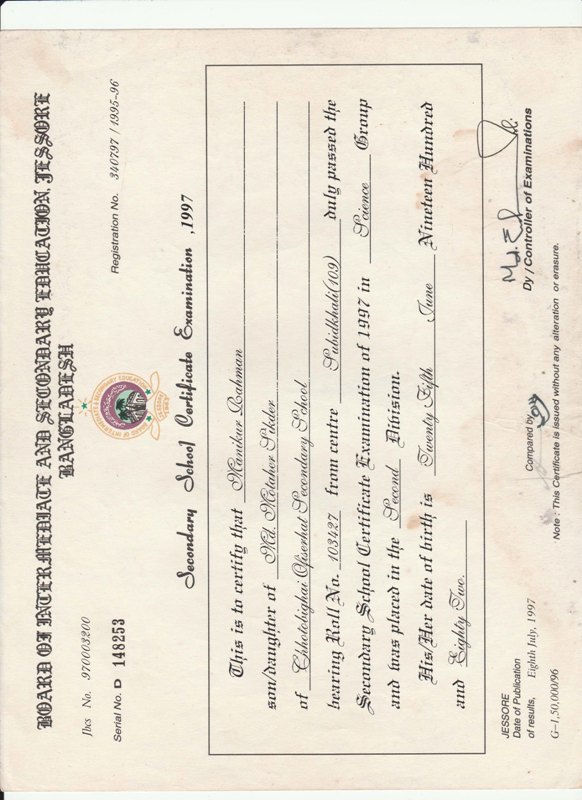 BOARD OF INTERMEDIATE AND SECONDARY EDUCATION, JESSORE
BANGLADESH
Jbcs No. 970003200
Registration No. 340797 / 1995-96
Serial No. D 148253
Secondary School Certificate Examination ,1997
This is to certify that Manikur Rahman
son/daughter of Md. Motaher Sikder
of Chhotobighai Ofiserhat Secondary School
bearing Roll No. 103427 from centre Subidkhali(109) duly passed the
Secondary School Certificate Examination of 1997 in Science Group
and was placed in the Second Division.
His/Her date of birth is Twenty Fifth June Nineteen Hundred
and Eighty Two.
JESSORE
Date of Publication
of results, Eighth July, 1997
Compared by
Dy / Controller of Examinations
G-1,50,000/96
Note : This Certificate is issued without any alteration or erasure.